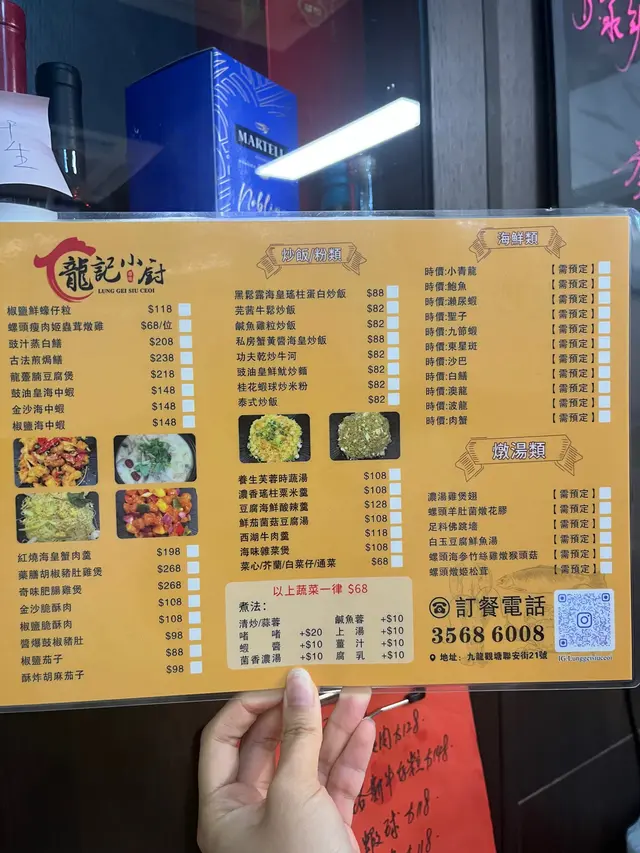 MARTELL
Noblige
龍記小厨
LUNG GEI SIU CEOI
椒鹽鮮蠔仔粒 $118
螺頭瘦肉姬蟲茸燉雞 $68/位
豉汁蒸白鱔 $208
古法煎焗鱔 $238
龍躉腩豆腐煲 $218
豉油皇海中蝦 $148
金沙海中蝦 $148
椒鹽海中蝦 $148
紅燒海皇蟹肉羹 $198
藥膳胡椒豬肚雞煲 $268
奇味肥腸雞煲 $268
金沙脆酥肉 $108
椒鹽脆酥肉 $108
醬爆鼓椒豬肚 $98
椒鹽茄子 $88
酥炸胡麻茄子 $98
炒飯/粉類
黑鬆露海皇瑤柱蛋白炒飯 $88
芫茜牛鬆炒飯 $82
鹹魚雞粒炒飯 $82
私房蟹黃醬海皇炒飯 $88
功夫乾炒牛河 $82
豉油皇鮮魷炒麵 $82
桂花蝦球炒米粉 $82
泰式炒飯 $82
養生芙蓉時蔬湯 $108
濃香瑤柱粟米羹 $108
豆腐海鮮酸辣羹 $128
鮮茄菌菇豆腐湯 $108
西湖牛肉羹 $118
海味雜菜煲 $108
菜心/芥蘭/白菜仔/通菜 $68
以上蔬菜一律 $68
煮法:
清炒/蒜蓉 鹹魚蓉 +$10
啫啫 +$20 上湯 +$10
蝦醬 +$10 薑汁 +$10
菌香濃湯 +$10 腐乳 +$10
海鮮類
時價:小青龍 【需預定】
時價:鮑魚 【需預定】
時價:瀨尿蝦 【需預定】
時價:聖子 【需預定】
時價:九節蝦 【需預定】
時價:東星斑 【需預定】
時價:沙巴 【需預定】
時價:白鱔 【需預定】
時價:澳龍 【需預定】
時價:波龍 【需預定】
時價:肉蟹 【需預定】
燉湯類
濃湯雞煲翅 【需預定】
螺頭羊肚菌燉花膠 【需預定】
足料佛跳墻 【需預定】
白玉豆腐鮮魚湯 【需預定】
螺頭海參竹絲雞燉猴頭菇 【需預定】
螺頭燉姬松茸 【需預定】
訂餐電話
3568 6008
地址: 九龍觀塘聯安街21號
IG:Lunggeisiuceoi
肉$128.
$148.
蝦球 $118
$118